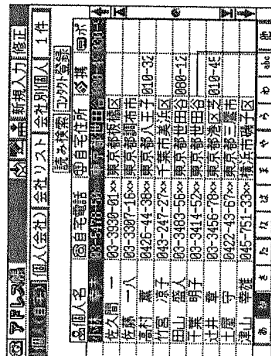 アドレス帳 新規入力 修正
個人自宅 個人(会社) 会社リスト 会社別個人 1件
読み検索 コンタクト登録
個人名 自宅電話 自宅住所 携 ポ
小林 東京都世田谷
佐久間 一 03-3930-01×× 東京都板橋区
佐藤 一八 03-3307-16×× 東京都調布市
高村 薫 0426-44-38×× 東京都八王子 010-32
竹宮 涼子 043-247-27×× 千葉市美浜区
田山 盛人 03-3483-56×× 東京都世田谷 080-12
千葉 明子 03-3414-52×× 東京都世田谷
辻井 章 03-3456-78×× 東京都港区芝 010-45
土屋 守 0422-43-67×× 東京都三鷹市
津山 幸雄 045-751-33×× 横浜市磯子区
あ か さ た な は ま や ら わ abc 他